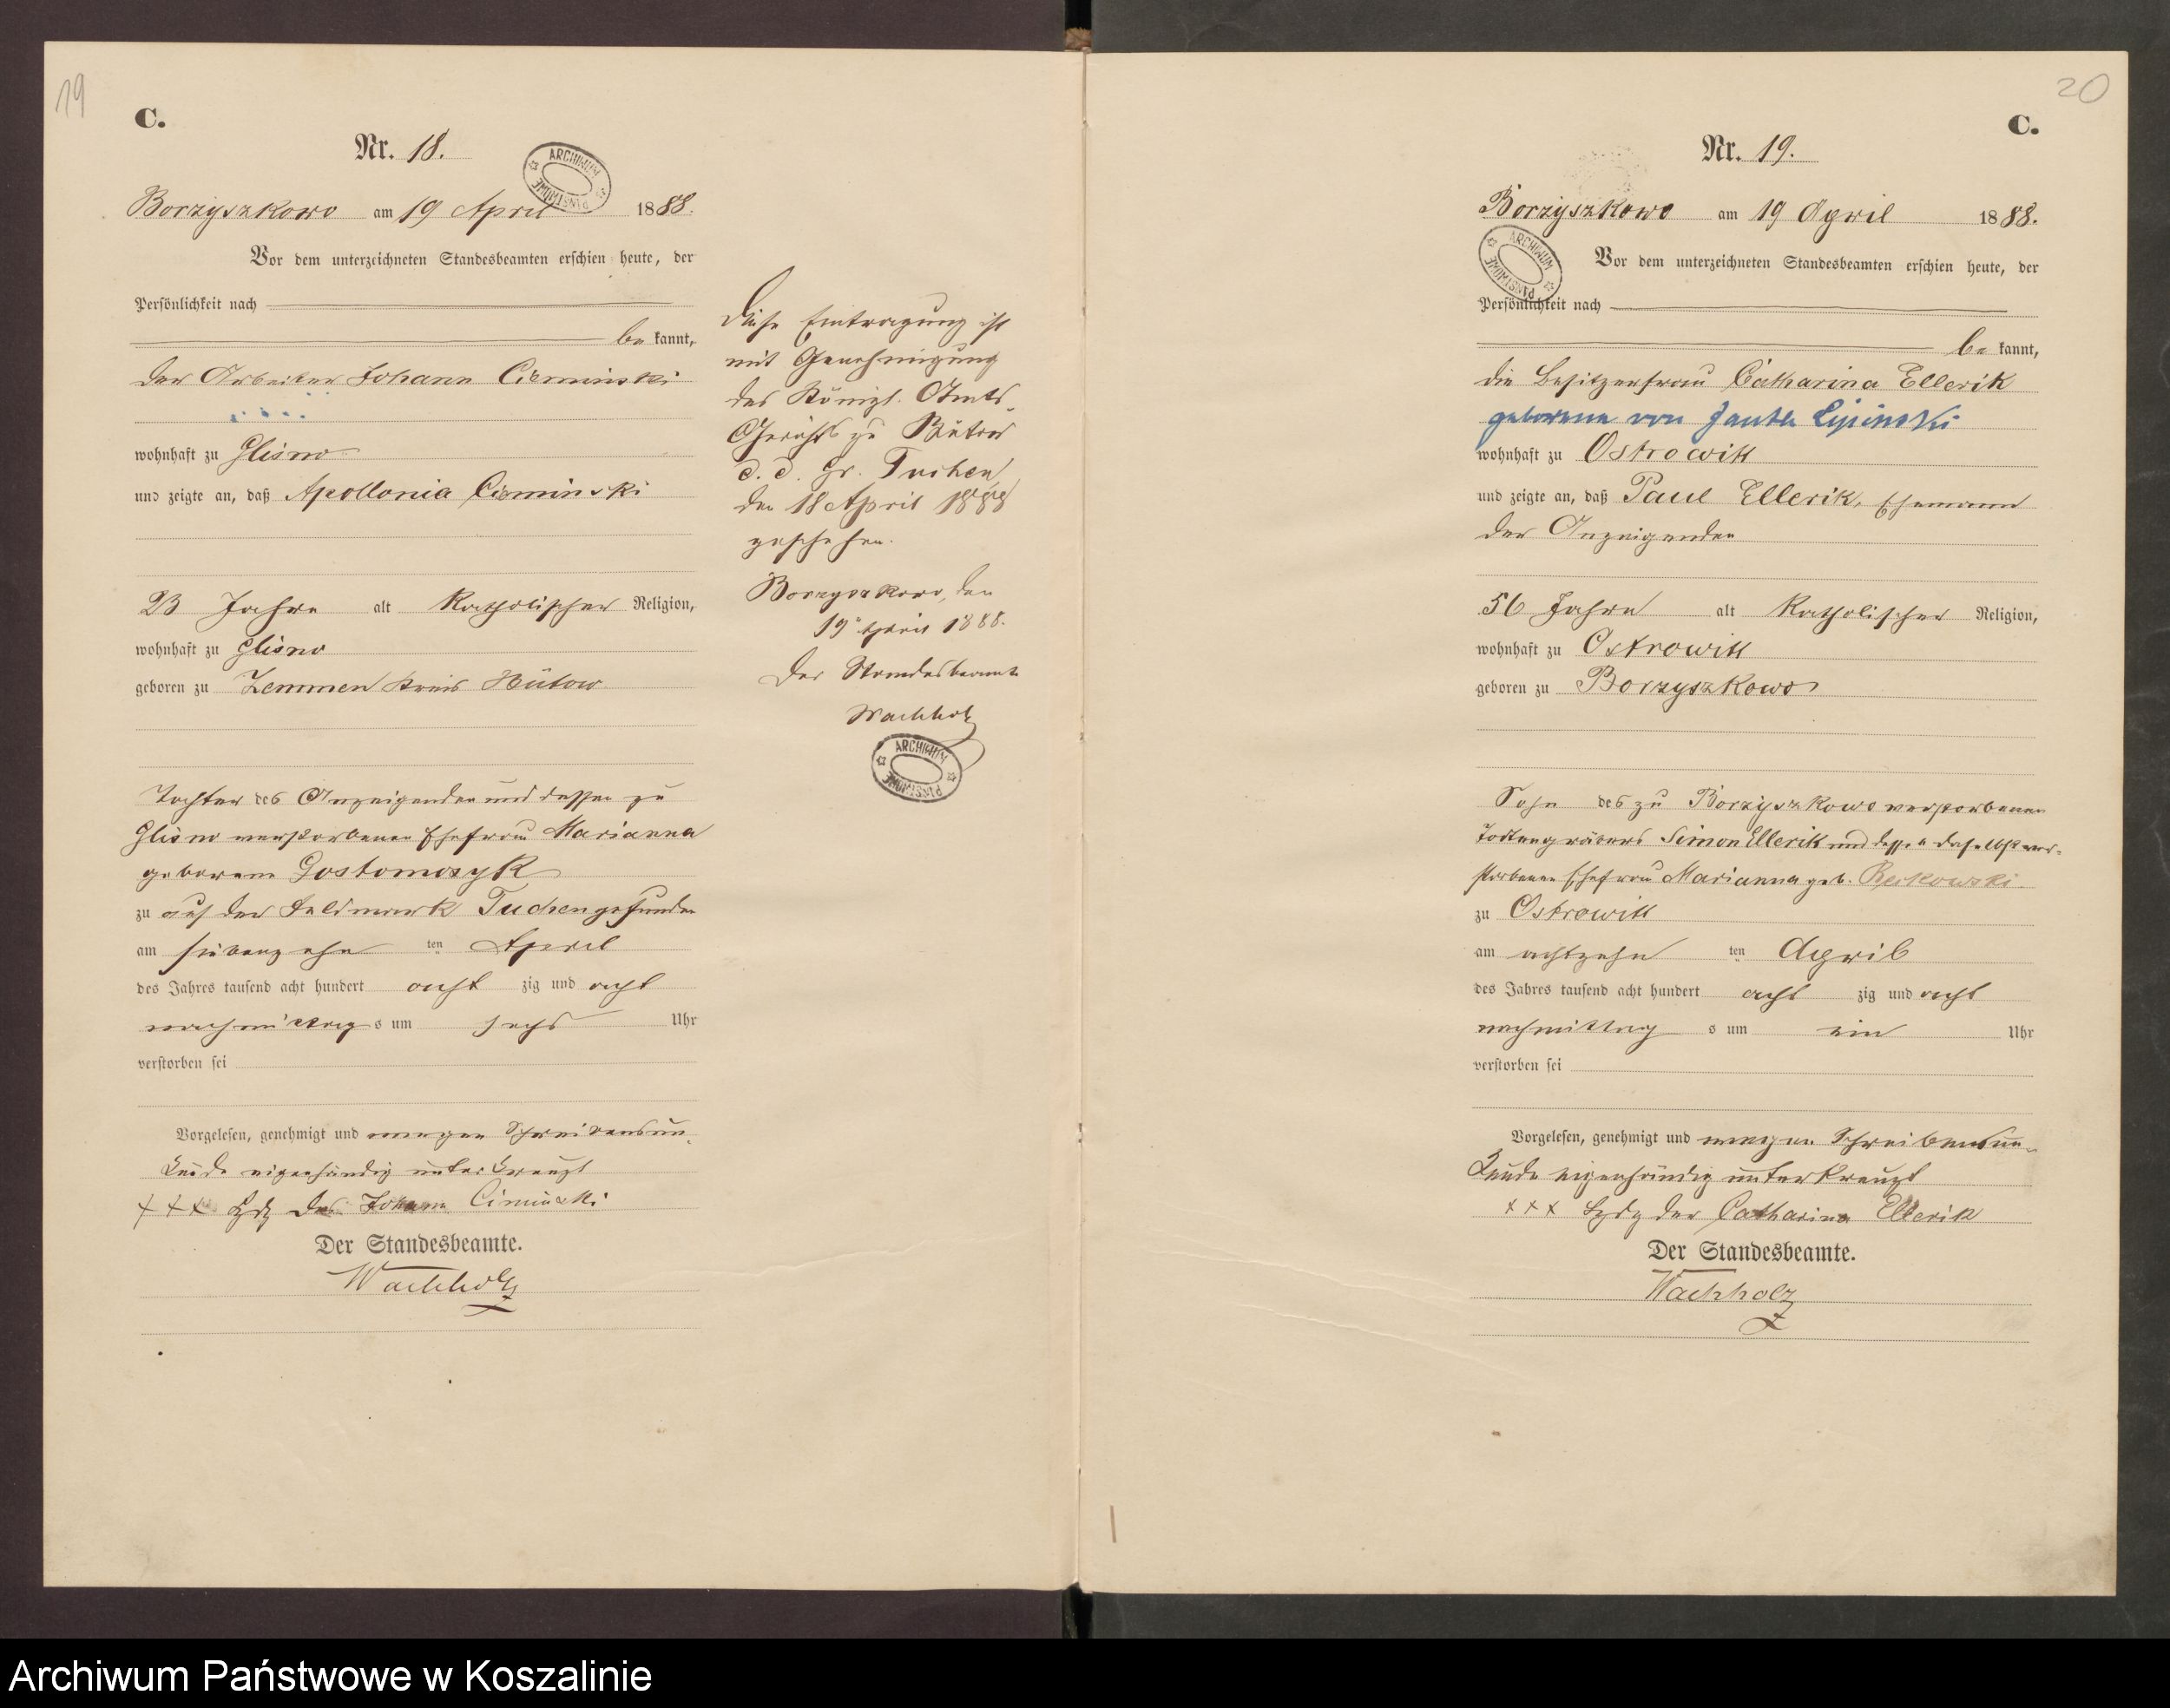 19
C.
Nr. 18.
ARCHIWUM PAŃSTWOWE
Borzyszkowo am 19 April 1888.
Vor dem unterzeichneten Standesbeamten erschien heute, der
Persönlichkeit nach
be kannt,
der Arbeiter Johann Cieminski
wohnhaft zu Glisno
und zeigte an, daß Apollonia Cieminski
23 Jahre alt katholischer Religion,
wohnhaft zu Glisno
geboren zu Zemmen Kreis Bütow
Tochter des Anzeigenden und dessen zu
Glisno verstorbenen Ehefrau Marianna
geborene Gostomczyk
zu auf der Feldmark Tuchen gefunden
am siebenzehn ten April
des Jahres tausend acht hundert acht zig und acht
nachmittag s um sechs Uhr
verstorben sei
Vorgelesen, genehmigt und wegen Schreibensun-
kunde eigenhändig unterkreuzt
+++ Hdz des Johann Cieminski
Der Standesbeamte.
Wachholz
Diese Eintragung ist
mit Genehmigung
des Königl. Amts-
Gerichts zu Bütow
d. d. Gr. Tuchen,
den 18 April 1888
geschehen.
Borzyszkowo, den
19 April 1888.
Der Standesbeamte
Wachholz
ARCHIWUM PAŃSTWOWE
20
C.
Nr. 19.
Borzyszkowo am 19 April 1888.
ARCHIWUM PAŃSTWOWE
Vor dem unterzeichneten Standesbeamten erschien heute, der
Persönlichkeit nach
be kannt,
die Besitzerfrau Catharina Ellerik
geborene von Janta Lipinski
wohnhaft zu Ostrowitt
und zeigte an, daß Paul Ellerik, Ehemann
der Anzeigenden
56 Jahre alt katholischer Religion,
wohnhaft zu Ostrowitt
geboren zu Borzyszkowo
Sohn des zu Borzyszkowo verstorbenen
Todtengräbers Simon Ellerik und dessen daselbst ver-
storbenen Ehefrau Marianna geb. Reikowski
zu Ostrowitt
am achtzehn ten April
des Jahres tausend acht hundert acht zig und acht
nachmittag s um ein Uhr
verstorben sei
Vorgelesen, genehmigt und wegen Schreibensun-
kunde eigenhändig unterkreuzt
+++ Hdz der Catharina Ellerik
Der Standesbeamte.
Wachholz
Archiwum Państwowe w Koszalinie